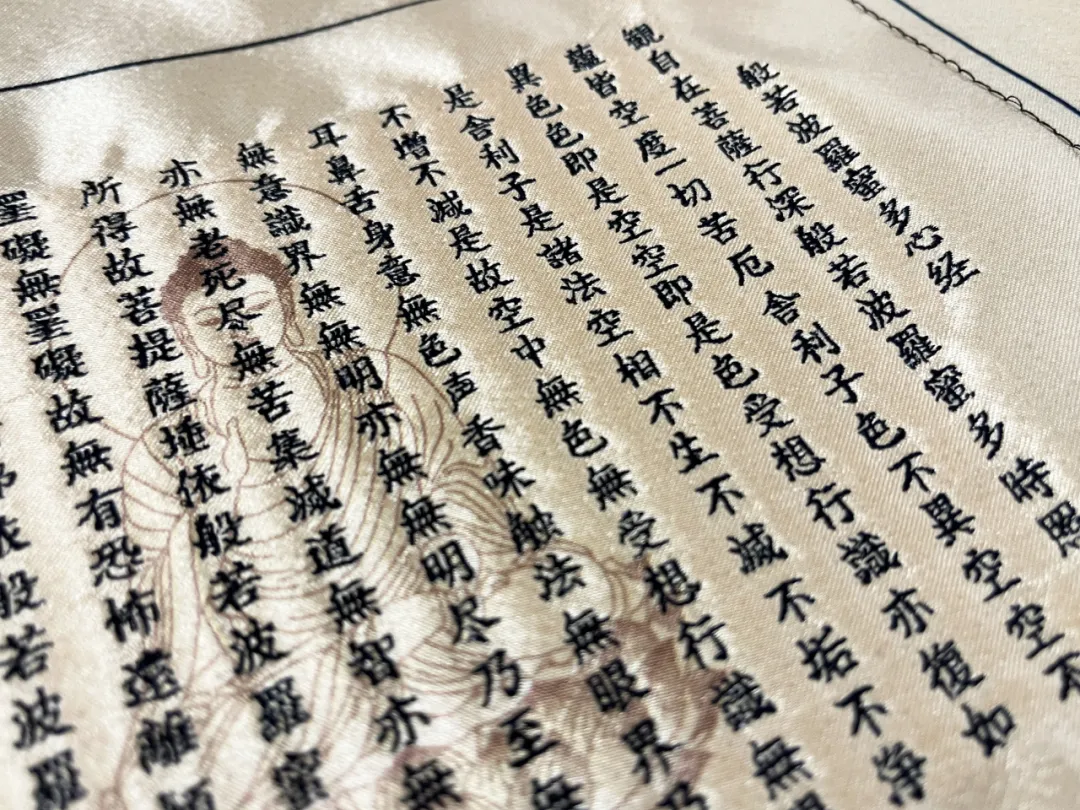 般若波羅蜜多心経
観自在菩薩行深般若波羅蜜多時
蘊皆空度一切苦厄舎利子色不異空空不
異色色即是空空即是色受想行識亦復如
是舎利子是諸法空相不生不滅不垢不浄
不増不減是故空中無色無受想行識無
耳鼻舌身意無色声香味触法無眼界乃
無意識界無無明亦無無明尽乃至無
亦無老死尽無苦集滅道無智亦無
所得故菩提薩埵依般若波羅蜜
罣礙無罣礙故無有恐怖遠離顛
依般若波羅